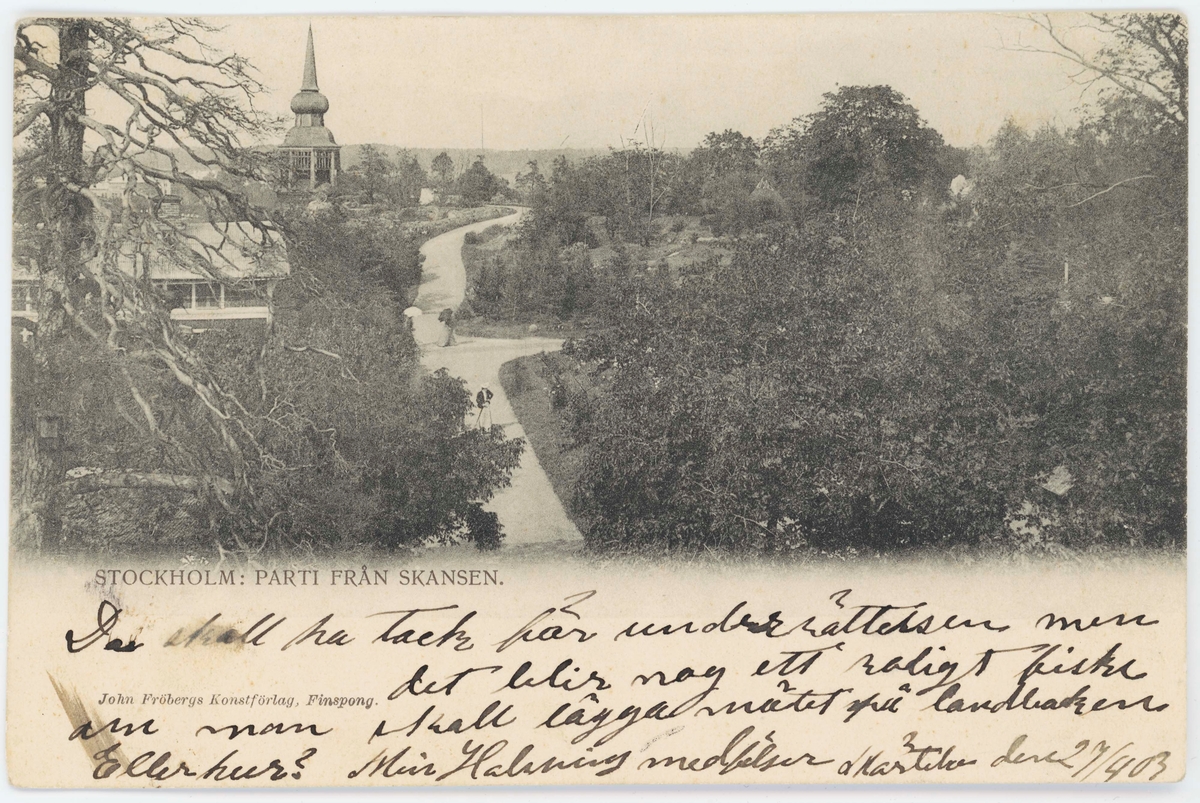 STOCKHOLM: PARTI FRÅN SKANSEN.
Du skall ha tack för underrättelsen men
det blir nog ett roligt fiske
John Fröbergs Konstförlag, Finspong.
om man skall lägga nätet på landbacken
Eller hur? Min Helsning medföljer den 27/4 03